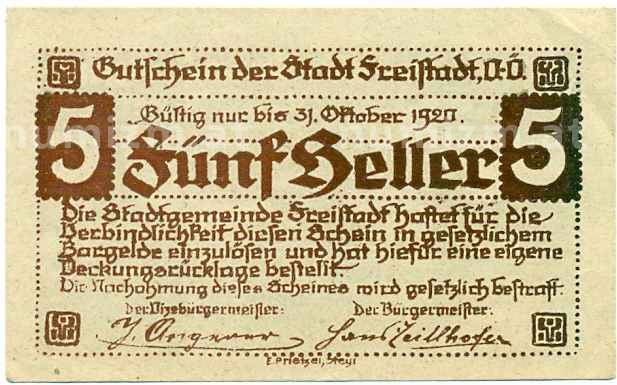 Gutschein der Stadt Freistadt, O.Ö.
Gültig nur bis 31. Oktober 1920.
5 Fünf Heller 5
Die Stadtgemeinde Freistadt haftet für die
Verbindlichkeit diesen Schein in gesetzlichem
Bargelde einzulösen und hat hiefür eine eigene
Deckungsrücklage bestellt.
Die Nachahmung dieses Scheines wird gesetzlich bestraft.
Der Vizebürgermeister: Der Bürgermeister:
E. Prietzel, Steyr